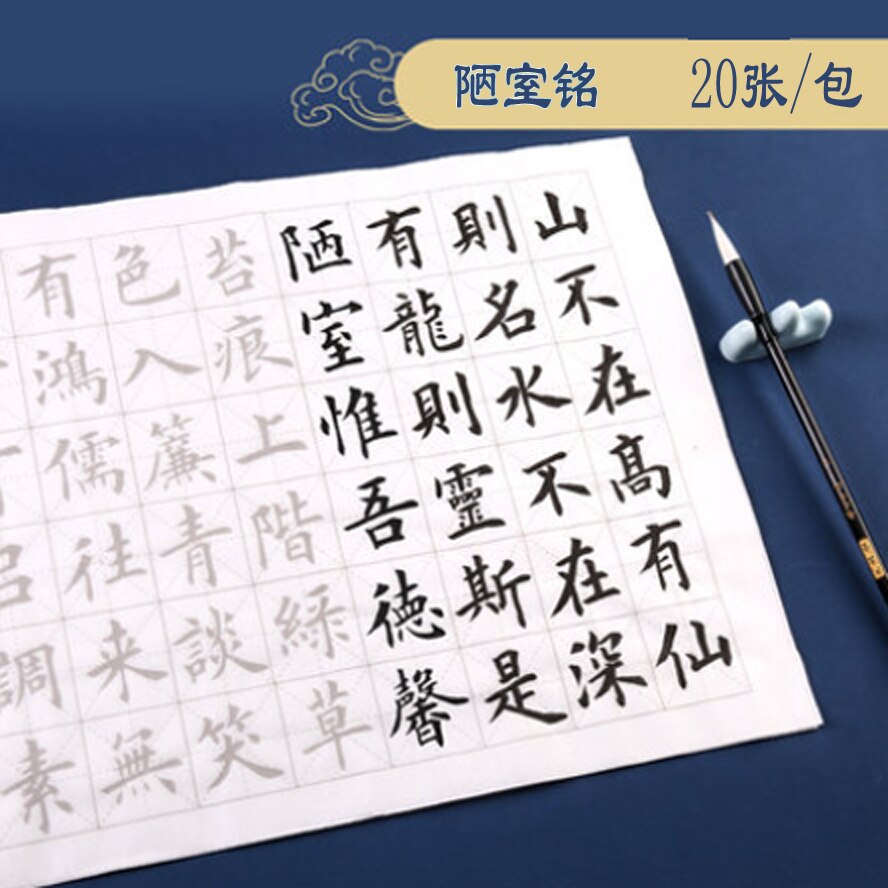 陋室铭 20张/包
山不在高有仙
則名水不在深
有龍則靈斯是
陋室惟吾德馨
苔痕上階綠草
色入簾青談笑
有鴻儒往来無
調素